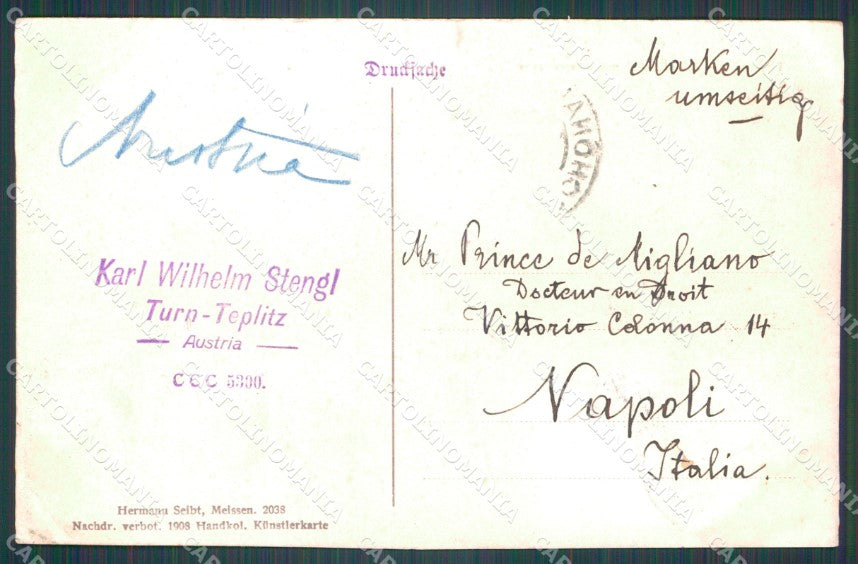 Drucksache
Marken
umseitig
Austria
Karl Wilhelm Stengl
Turn-Teplitz
Austria
CEC 5390.
Mr Prince de Migliano
Docteur en Droit
Vittorio Colonna 14
Napoli
Italia.
Hermann Seibt, Meissen. 2038
Nachdr. verbot. 1908 Handkol. Künstlerkarte
CARTOLINOMANIA